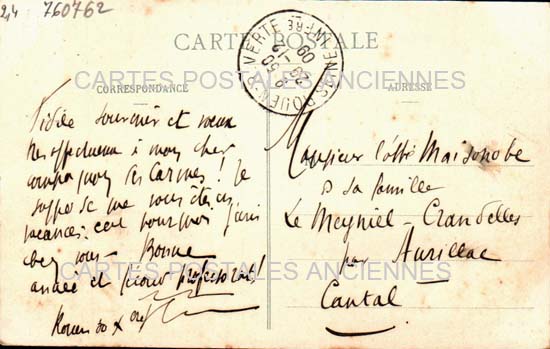 2,4 760762
CARTE POSTALE
CARTES POSTALES ANCIENNES
CORRESPONDANCE
ADRESSE
ROUEN-R. VERTE
Fidèle souvenir et vœux
respectueux à mon cher
compagnon des Carmes ! Je
suppose que vous êtes en
vacances: c'est pourquoi j'écris
chez vous - Bonne
année et pieux professorat !
Rouen 30 Xbre
Monsieur l'abbé Maisonobe
sa famille
Le Meyniel - Crandelles
par Aurillac
Cantal
CARTES POSTALES ANCIENNES